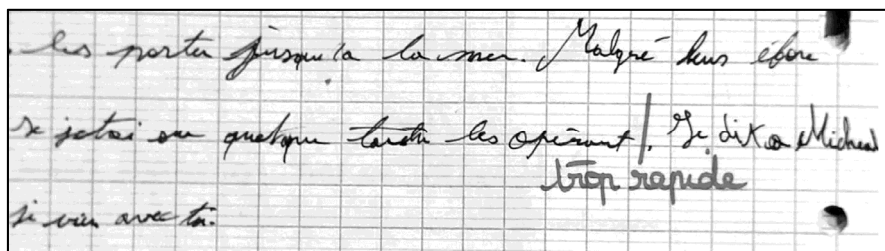 . les porter jusqu'a la mer. Malgré leurs éfore
se jetai sur quelque les opérant /. Je dit a Micheal
trop rapide
je vien avec toi.